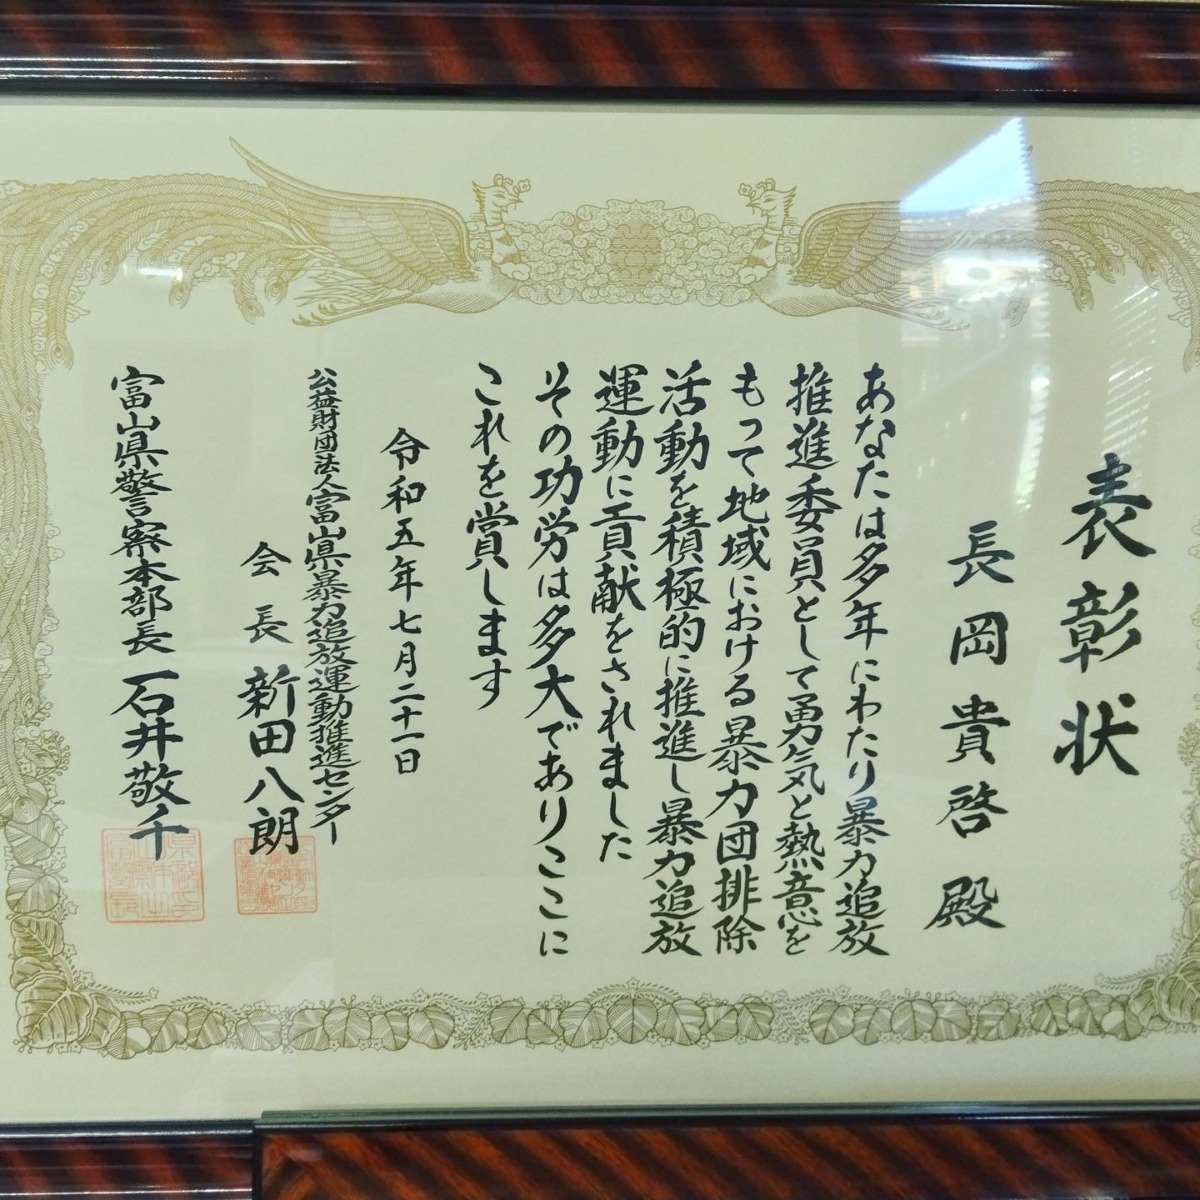 表彰状
長岡貴啓殿
あなたは多年にわたり暴力追放
推進委員として勇気と熱意を
もって地域における暴力団排除
活動を積極的に推進し暴力追放
運動に貢献をされました
その功労は多大でありここに
これを賞します
令和五年七月二十一日
公益財団法人富山県暴力追放運動推進センター
会長 新田八朗
富山県警察本部長 石井敬千